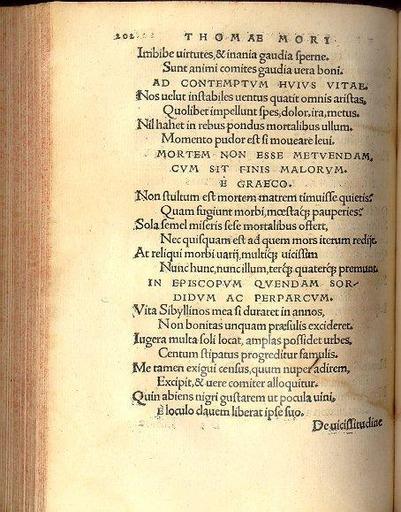 202 THOMAE MORI
Imbibe uirtutes, & inania gaudia sperne.
Sunt animi comites gaudia uera boni.
AD CONTEMPTVM HVIVS VITAE.
Nos uelut instabiles uentus quatit omnis aristas,
Quolibet impellunt spes, dolor, ira, metus.
Nil habet in rebus pondus mortalibus ullum.
Momento pudor est si moueare leui.
MORTEM NON ESSE METVENDAM,
CVM SIT FINIS MALORVM.
E GRAECO.
Non stultum est mortem matrem timuisse quietis?
Quam fugiunt morbi, mœstaq; pauperies?
Sola semel miseris sese mortalibus offert,
Nec quisquam est ad quem mors iterum redijt.
At reliqui morbi uarij, multiq; uicissim
Nunc hunc, nunc illum, terq; quaterq; premunt.
IN EPISCOPVM QVENDAM SOR-
DIDVM AC PERPARCVM.
Vita Sibyllinos mea si duratet in annos,
Non bonitas unquam præsulis excideret.
Iugera multa soli locat, amplas possidet urbes,
Centum stipatus progreditur famulis.
Me tamen exigui census, quum nuper adirem,
Excipit, & uere comiter alloquitur.
Quin abiens nigri gustarem ut pocula uini,
E loculo clauem liberat ipse suo.
De uicissitudine